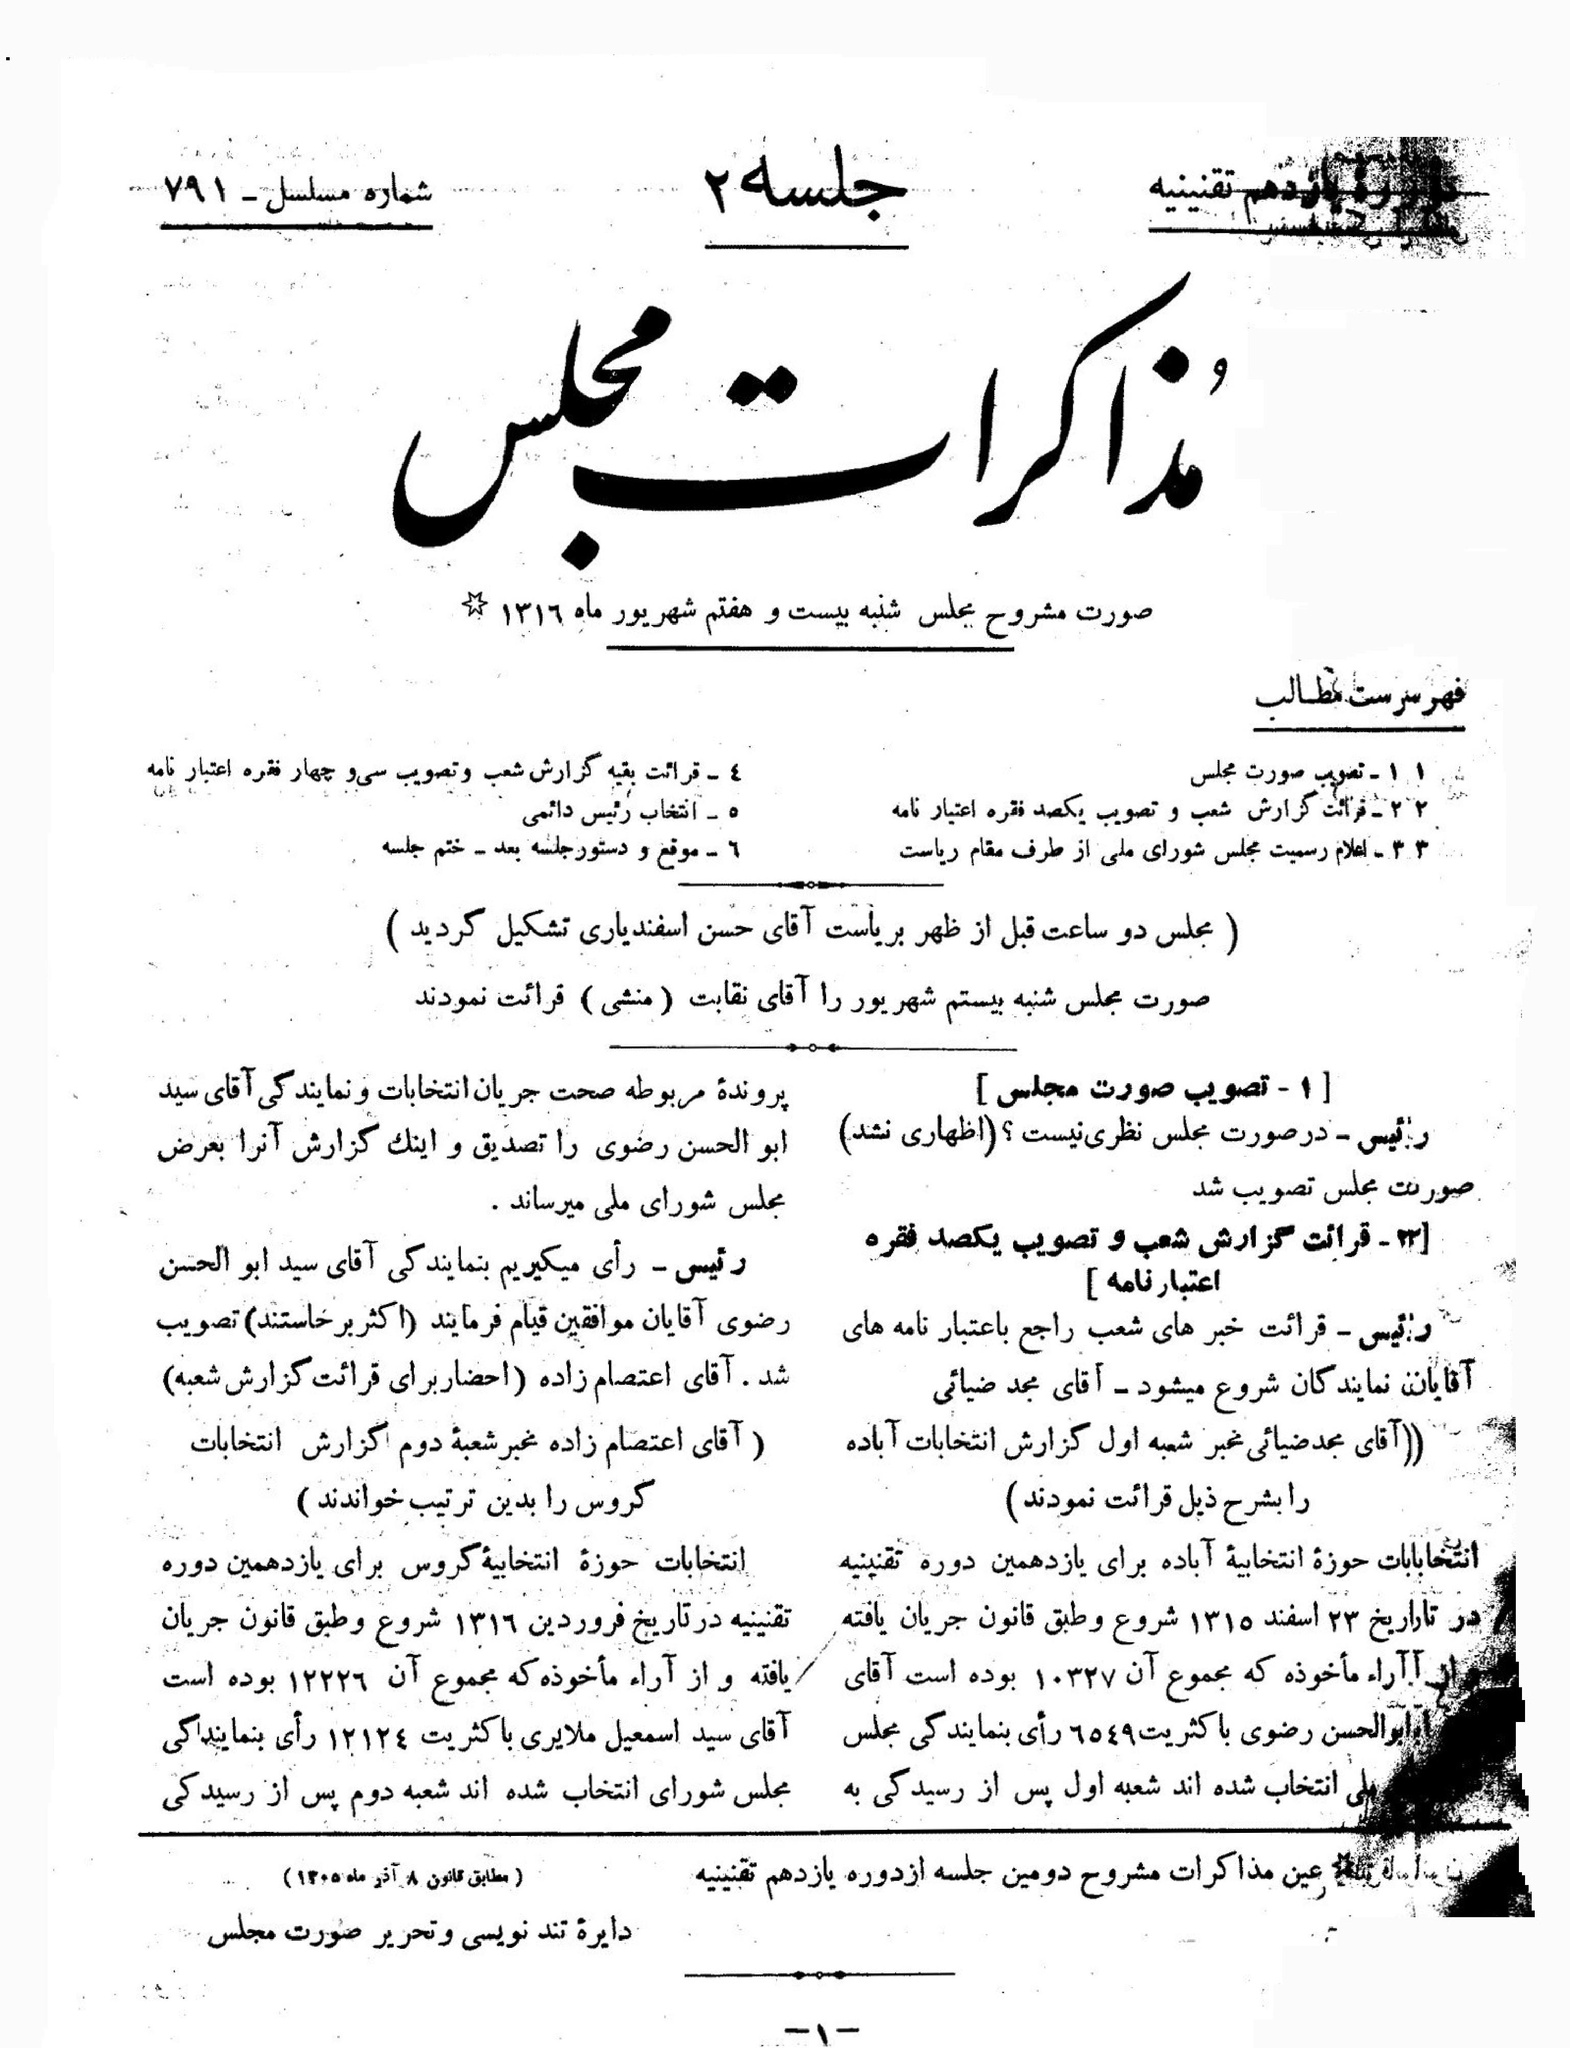 دورهٔ یازدهم تقنینیه
جلسه ۲
شماره مسلسل ـ ۷۹۱
مُذاکرات مجلس
صورت مشروح مجلس شنبه بیست و هفتم شهریور ماه ۱۳۱٦ ✡
فهرست مطالب
۱ ـ تصویب صورت مجلس
۲ ـ قرائت گزارش شعب و تصویب یکصد فقره اعتبار نامه
۳ ـ اعلام رسمیت مجلس شورای ملی از طرف مقام ریاست
٤ ـ قرائت بقیه گزارش شعب و تصویب سی و چهار فقره اعتبار نامه
۵ ـ انتخاب رئیس دائمی
٦ ـ موقع و دستور جلسه بعد ـ ختم جلسه
( مجلس دو ساعت قبل از ظهر بریاست آقای حسن اسفندیاری تشکیل گردید )
صورت مجلس شنبه بیستم شهریور را آقای نقابت ( منشی ) قرائت نمودند
[ ۱ - تصویب صورت مجلس ]
رئیس ـ در صورت مجلس نظری نیست ؟ (اظهاری نشد)
صورت مجلس تصویب شد
[۲ - قرائت گزارش شعب و تصویب یکصد فقره
اعتبار نامه ]
رئیس ـ قرائت خبر های شعب راجع باعتبار نامه های
آقایان نمایندگان شروع میشود ـ آقای مجد ضیائی
(آقای مجد ضیائی مخبر شعبه اول گزارش انتخابات آباده
را بشرح ذیل قرائت نمودند)
انتخابات حوزهٔ انتخابیهٔ آباده برای یازدهمین دوره تقنینیه
در تاریخ ۲۳ اسفند ۱۳۱۵ شروع و طبق قانون جریان یافته
و از آراء مأخوذه که مجموع آن ۱۰۳۲۷ بوده است آقای
ابوالحسن رضوی با کثریت ٦۵٤۹ رأی بنمایندگی مجلس
ملی انتخاب شده اند شعبه اول پس از رسیدگی به
پروندهٔ مربوطه صحت جریان انتخابات و نمایندگی آقای سید
ابو الحسن رضوی را تصدیق و اینك گزارش آنرا بعرض
مجلس شورای ملی میرساند .
رئیس ـ رأی میگیریم بنمایندگی آقای سید ابو الحسن
رضوی آقایان موافقین قیام فرمایند (اکثر برخاستند) تصویب
شد . آقای اعتصام زاده (احضار برای قرائت گزارش شعبه)
( آقای اعتصام زاده مخبر شعبهٔ دوم گزارش انتخابات
گروس را بدین ترتیب خواندند )
انتخابات حوزهٔ انتخابیهٔ گروس برای یازدهمین دوره
تقنینیه در تاریخ فروردین ۱۳۱٦ شروع و طبق قانون جریان
یافته و از آراء مأخوذه که مجموع آن ۱۲۲۲٦ بوده است
آقای سید اسمعیل ملایری با کثریت ۱۲۱۲٤ رأی بنمایندگی
مجلس شورای انتخاب شده اند شعبه دوم پس از رسیدگی
✡ عین مذاکرات مشروح دومین جلسه از دوره یازدهم تقنینیه
( مطابق قانون ۸ آذر ماه ۱۳۰۵ )
دایرهٔ تند نویسی و تحریر صورت مجلس
ـ ۱ ـ